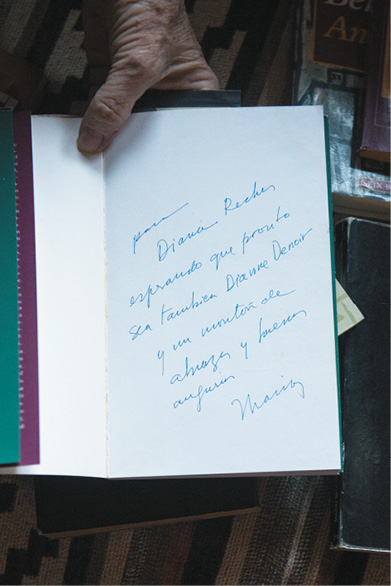 para
Diana Reches
esperando que pronto
sea también Dianne Denoir
y un montón de
abrazos y buenos
augurios
Mario